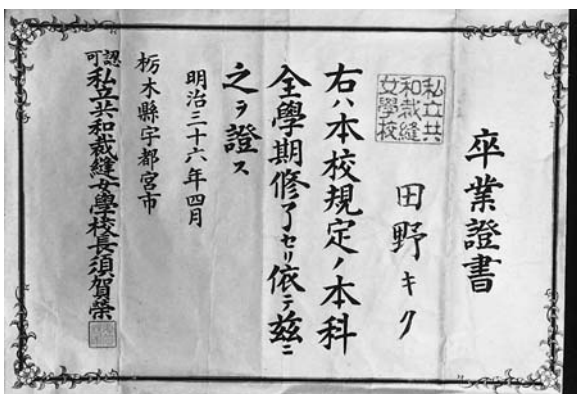 卒業證書
私立共
和裁縫
女學校
田野キク
右ハ本校規定ノ本科
全學期修了セリ依テ茲ニ
之ヲ證ス
明治三十六年四月
栃木縣宇都宮市
認可私立共和裁縫女學校長須賀榮